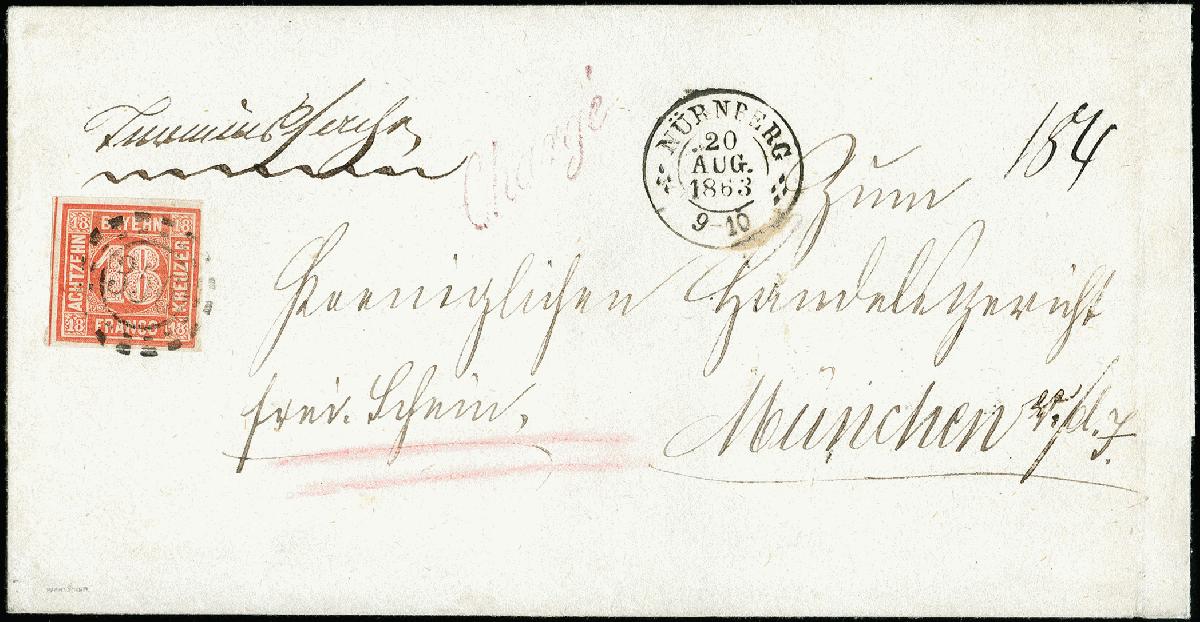 Termins Sache
Chargé
NÜRNBERG
20
AUG.
1863
9-10
184
Zum
18 BAYERN 18
ACHTZEHN 18 KREUZER
18 FRANCO 18
Koeniglichen Handelsgericht
frei. Schein.
München r/d. I.